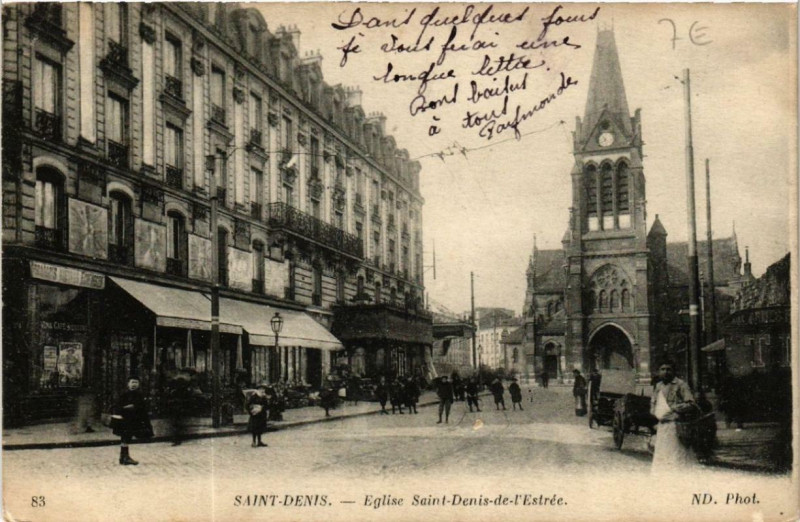 Dans quelques jours
je vous ferai une
longue lettre.
Bons baisers
à tous
Raymonde
7€
83 SAINT-DENIS. — Eglise Saint-Denis-de-l'Estrée. ND. Phot.